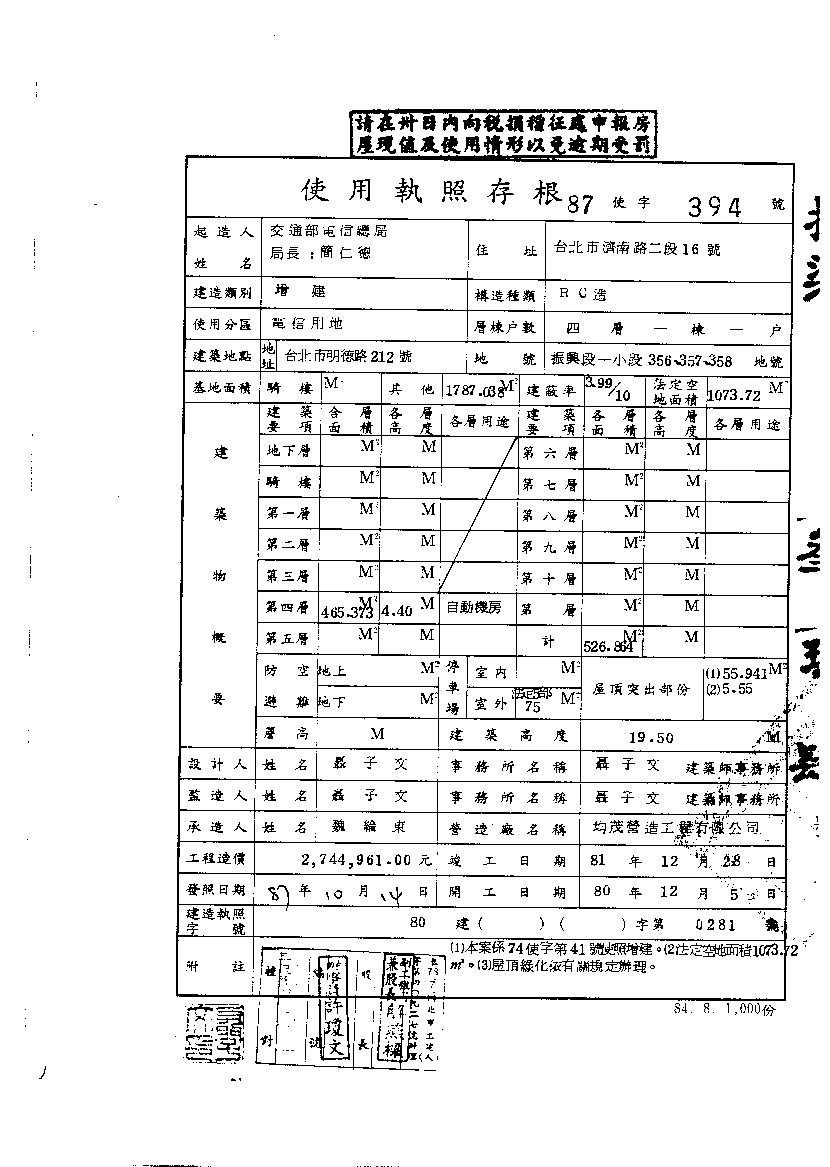 請在卅日內向稅捐稽征處申報房
屋現值及使用情形以免逾期受罰
使用執照存根 87 使字 394 號
起造人姓名 交通部電信總局 局長：簡仁德 住址 台北市濟南路二段16號
建造類別 增建 構造種類 RC造
使用分區 電信用地 層棟戶數 四層一棟一戶
建築地點 地址 台北市明德路212號 地號 振興段一小段356-357-358 地號
基地面積 騎樓 M² 其他 1787.038M² 建蔽率 3.99/10 法定空地面積 1073.72 M²
建築物概要
建築要項 各層面積 各層高度 各層用途 建築要項 各層面積 各層高度 各層用途
地下層 M² M 第六層 M² M
騎樓 M² M 第七層 M² M
第一層 M² M 第八層 M² M
第二層 M² M 第九層 M² M
第三層 M² M 第十層 M² M
第四層 465.373 M² 4.40 M 自動機房 第 層 M² M
第五層 M² M 計 526.864 M² M
防空避難 地上 M² 停車場 室內 M² 屋頂突出部份 (1)55.941M²
地下 M² 室外 75 M² (2)5.55
層高 M 建築高度 19.50 M
設計人 姓名 聶子文 事務所名稱 聶子文 建築師事務所
監造人 姓名 聶子文 事務所名稱 聶子文 建築師事務所
承造人 姓名 魏綸東 營造廠名稱 均茂營造工程有限公司
工程造價 2,744,961.00元 竣工日期 81年12月28日
發照日期 87年10月14日 開工日期 80年12月5日
建造執照字號 80 建( )( )字第 0281 號
附註 (1)本案係74使字第41號使照增建。(2)法定空地面積1073.72
m²。(3)屋頂綠化依有關規定辦理。
84. 8. 1,000份
許瓊文
股長
校對